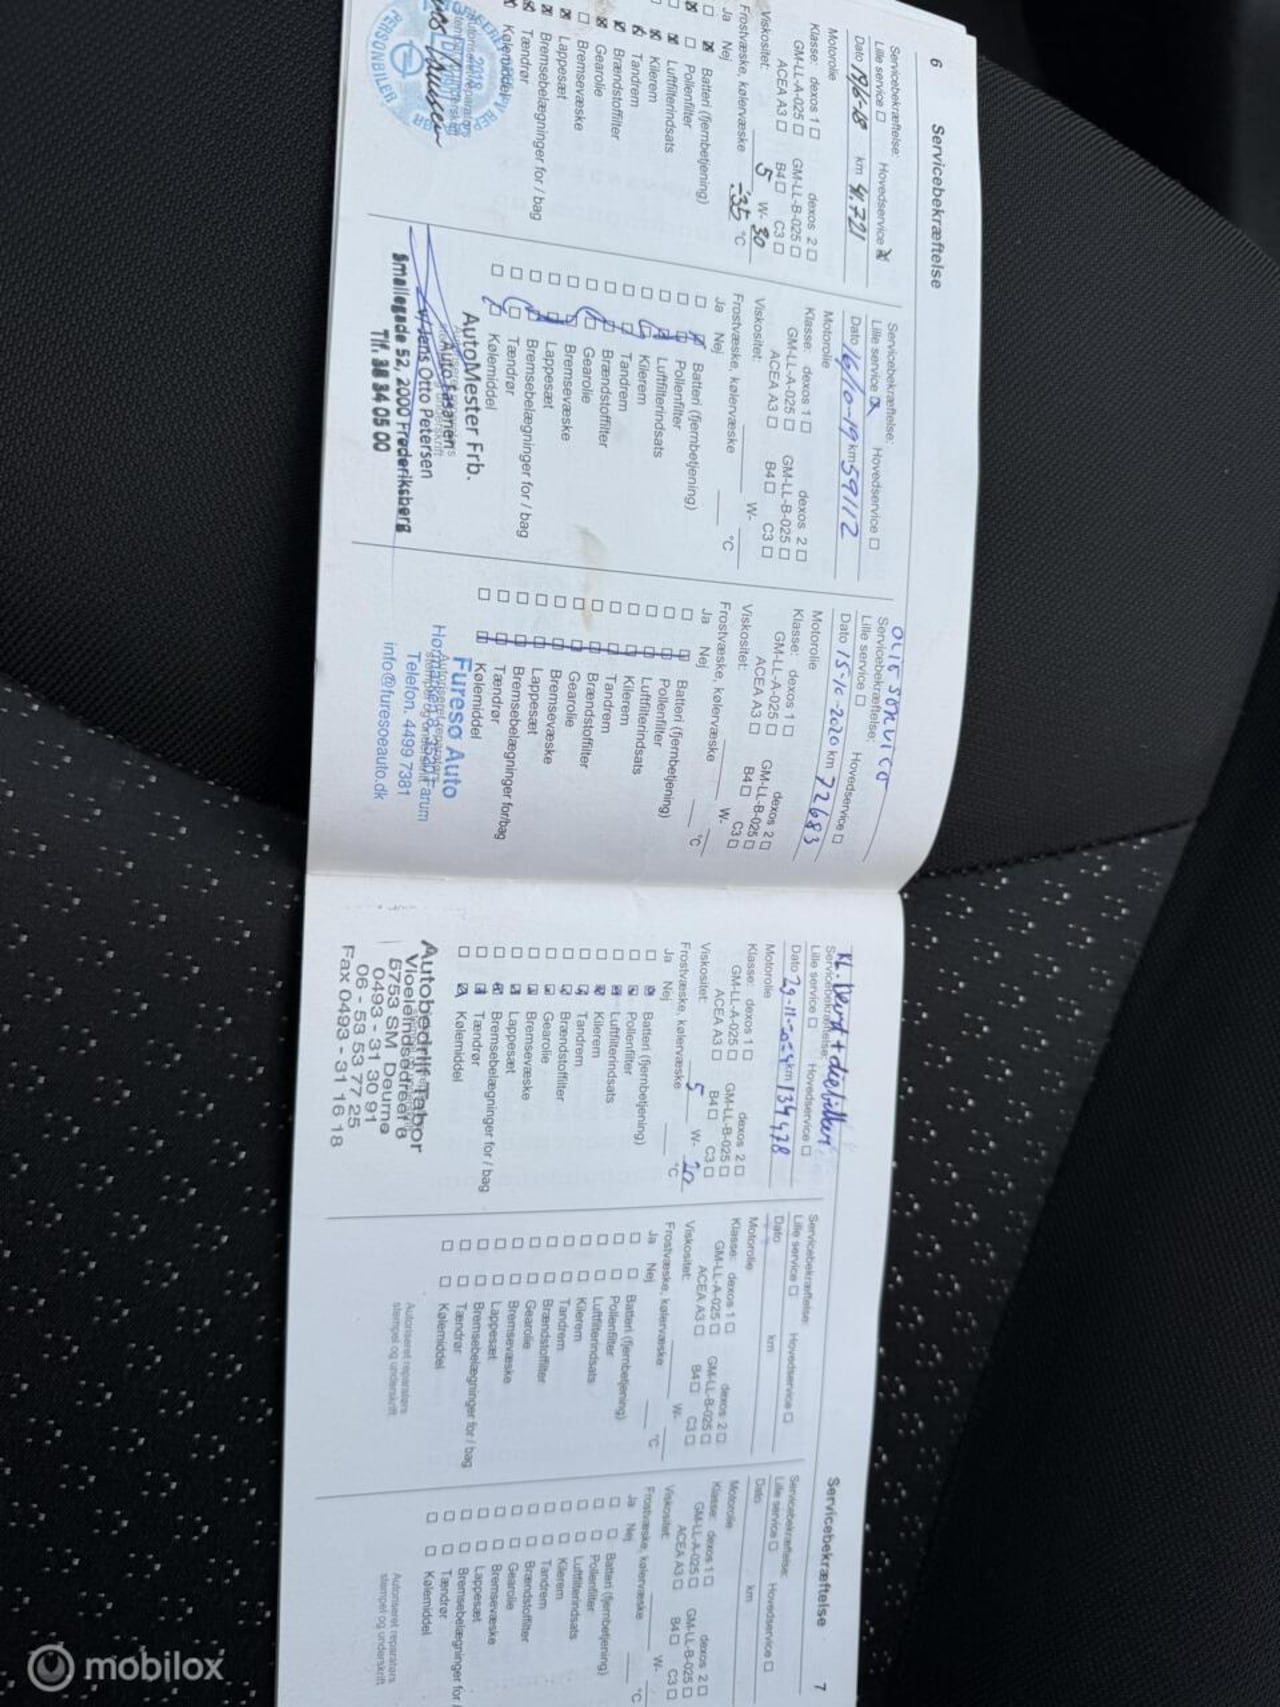 6 Servicebekræftelse
Servicebekræftelse:
Lille service ☐ Hovedservice ☒
Dato 19/6-18 km 41.721
Motorolie
Klasse: dexos 1 ☐ dexos 2 ☐
GM-LL-A-025 ☐ GM-LL-B-025 ☐
ACEA A3 ☐ B4 ☐ C3 ☐
Viskositet: 5 W- 30
Frostvæske, kølervæske -35 °C
Ja Nej
Batteri (fjernbetjening)
Pollenfilter
Luftfilterindsats
Kilerem
Tandrem
Brændstoffilter
Gearolie
Bremsevæske
Lappesæt
Bremsebelægninger for / bag
Tændrør
Kølemiddel
2018
PERSONBILER
Servicebekræftelse:
Lille service ☒ Hovedservice ☐
Dato 16/10-19 km 59112
Motorolie
Klasse: dexos 1 ☐ dexos 2 ☐
GM-LL-A-025 ☐ GM-LL-B-025 ☐
ACEA A3 ☐ B4 ☐ C3 ☐
Viskositet: W-
Frostvæske, kølervæske °C
Ja Nej
Batteri (fjernbetjening)
Pollenfilter
Luftfilterindsats
Kilerem
Tandrem
Brændstoffilter
Gearolie
Bremsevæske
Lappesæt
Bremsebelægninger for / bag
Tændrør
Kølemiddel
AutoMester Frb.
v/ Jens Otto Petersen
Smallegade 52, 2000 Frederiksberg
Tlf. 38 34 05 00
Servicebekræftelse:
Lille service ☐ Hovedservice ☐
Dato 15-10-2020 km 72683
Motorolie
Klasse: dexos 1 ☐ dexos 2 ☐
GM-LL-A-025 ☐ GM-LL-B-025 ☐
ACEA A3 ☐ B4 ☐ C3 ☐
Viskositet: W-
Frostvæske, kølervæske °C
Ja Nej
Batteri (fjernbetjening)
Pollenfilter
Luftfilterindsats
Kilerem
Tandrem
Brændstoffilter
Gearolie
Bremsevæske
Lappesæt
Bremsebelægninger for/bag
Tændrør
Kølemiddel
Furesø Auto
Farum
Telefon. 4499 7381
info@furesoeauto.dk
Servicebekræftelse 7
Servicebekræftelse:
Lille service ☐ Hovedservice ☐
Dato 29-11-2024 km 134478
Motorolie
Klasse: dexos 1 ☐ dexos 2 ☐
GM-LL-A-025 ☐ GM-LL-B-025 ☐
ACEA A3 ☐ B4 ☐ C3 ☐
Viskositet: 5 W-
Frostvæske, kølervæske °C
Ja Nej
Batteri (fjernbetjening)
Pollenfilter
Luftfilterindsats
Kilerem
Tandrem
Brændstoffilter
Gearolie
Bremsevæske
Lappesæt
Bremsebelægninger for / bag
Tændrør
Kølemiddel
Autobedrijf Tabor
Vloeieindsedreef 8
5753 SM Deurne
0493 - 31 30 91
06 - 53 53 77 25
Fax 0493 - 31 16 18
Servicebekræftelse:
Lille service ☐ Hovedservice ☐
Dato km
Motorolie
Klasse: dexos 1 ☐ dexos 2 ☐
GM-LL-A-025 ☐ GM-LL-B-025 ☐
ACEA A3 ☐ B4 ☐ C3 ☐
Viskositet: W-
Frostvæske, kølervæske °C
Ja Nej
Batteri (fjernbetjening)
Pollenfilter
Luftfilterindsats
Kilerem
Tandrem
Brændstoffilter
Gearolie
Bremsevæske
Lappesæt
Bremsebelægninger for / bag
Tændrør
Kølemiddel
Autoriseret reparatørs
stempel og underskrift
Servicebekræftelse:
Lille service ☐ Hovedservice ☐
Dato km
Motorolie
Klasse: dexos 1 ☐ dexos 2 ☐
GM-LL-A-025 ☐ GM-LL-B-025 ☐
ACEA A3 ☐ B4 ☐ C3 ☐
Viskositet: W-
Frostvæske, kølervæske °C
Ja Nej
Batteri (fjernbetjening)
Pollenfilter
Luftfilterindsats
Kilerem
Tandrem
Brændstoffilter
Gearolie
Bremsevæske
Lappesæt
Bremsebelægninger for /
Tændrør
Kølemiddel
Autoriseret reparatørs
stempel og underskrift
mobilox